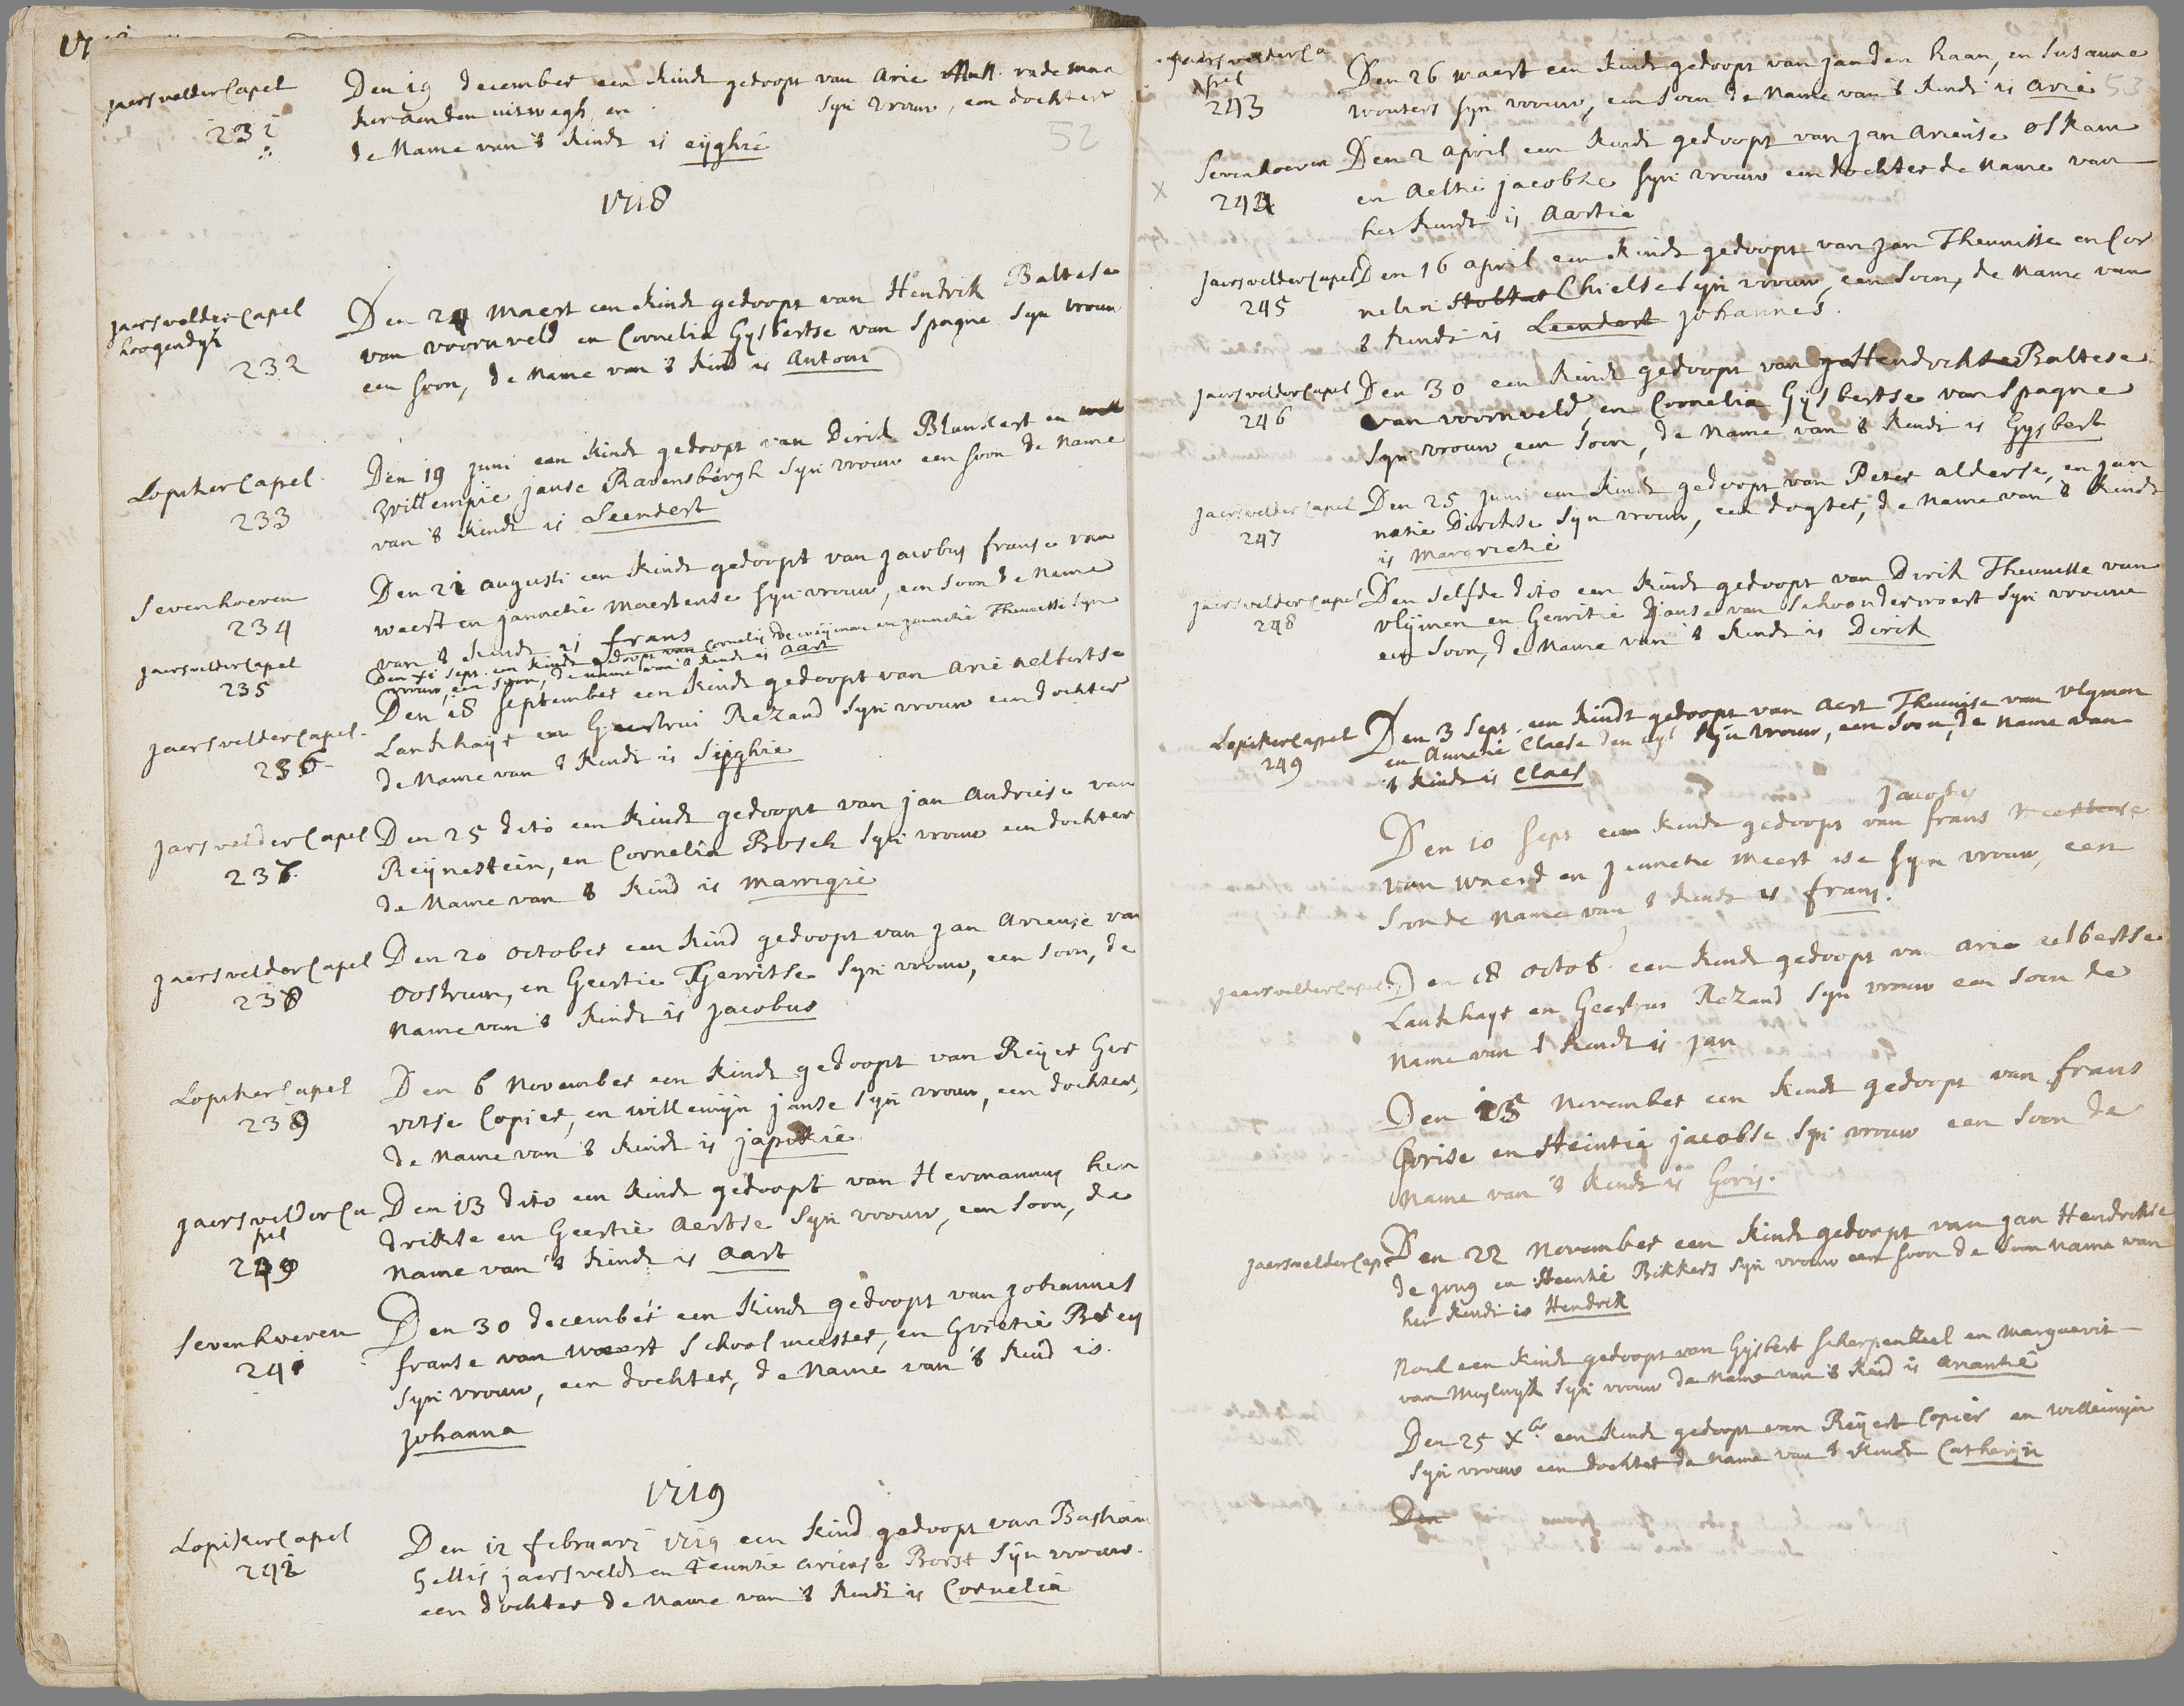 52
Jaersvelder Capel
231
Den 19 december een kindt gedoopt van Arie rademaa
ker aenden uitwegh, en syn vrouw, een dochter
de Name van 't kindt is eijghie
1718
Jaersvelder Capel
hoogendijk
232
Den 24 Maert een kindt gedoopt van Hendrik Baltese
van voornveld en Cornelia Gysbertse van Spagne syn vrouw
een soon, de Name van 't kind is Antoni
Lopiker Capel
233
Den 19 Juni een kindt gedoopt van Dirck Blankert en
Willempie Janse Ravensbergh syn vrouw een soon de Name
van 't kindt is Leendert
Sevenhoeven
234
Den 21 augusti een kindt gedoopt van Jacobus franse van
weert en Jannetie Maertense syn vrouw, een soon de Name
van 't kindt is frans
Jaersvelder Capel
235
Den XI Sept. een kindt gedoopt van Cornelis de weijman en Jannetie Theunisse syn
vrouw, een soon, de name van 't kindt is Aart
Jaersvelder Capel
236
Den 18 September een kindt gedoopt van Arie Aelbertse
Lankhayt en Geertrui Rezand syn vrouw een dochter
de Name van 't kindt is Sijghie
Jarsvelder Capel
237
Den 25 dito een kindt gedoopt van Jan Andriese van
Reijnestein, en Cornelia Bosch syn vrouw een dochter
de Name van 't kind is Marrigie
Jaersvelder Capel
238
Den 20 October een kind gedoopt van Jan Ariense van
Oostrum, en Geertie Gerritse syn vrouw, een soon, de
Name van 't kindt is Jacobus
Lopiker Capel
239
Den 6 November een kindt gedoopt van Reijer Ger
ritse Copier, en willemijn Janse syn vrouw, een dochter,
de Name van 't kindt is Japikie
Jaersvelder Ca
pel
Den 13 dito een kindt gedoopt van Hermannus hen
drikse en Geertie Aertse syn vrouw, een soon, de
Name van 't kindt is Aart
Sevenhoeven
241
Den 30 december een kindt gedoopt van Johannes
franse van weert Schoolmeester, en Grietie Breij
syn vrouw, een dochter, de Name van 't kind is
Johanna
1719
Lopiker Capel
242
Den 12 februari 1719 een kind gedoopt van Bastiaan
Gellis Jaersveldt en Teuntie ariense Borst syn vrouw
een dochter de Name van 't kindt is Cornelia
Jaersvelder Ca
pel
243
Den 26 maert een kindt gedoopt van Jan den haan, en Susanne
wouters syn vrouw, een soon de Name van 't kindt is Arie
53
Sevenhoeven
244
X
Den 2 April een kindt gedoopt van Jan Ariense Oskam
en Aeltie Jacobse syn vrouw een dochter de Name van
het kindt is Aartie
Jaersvelder Capel
245
Den 16 april een kindt gedoopt van Jan Theunisse en Cor
nelia Chielse syn vrouw, een soon, de Name van
't kindt is Leendert Johannes.
Jaersvelder Capel
246
Den 30 een kindt gedoopt van Hendrick Baltese
van voornveld, en Cornelia Gijsbertse van Spagne
syn vrouw, een soon, de Name van 't kindt is Gysbert
Jaersvelder Capel
247
Den 25 Juni een kindt gedoopt van Peter alderse, en Jan
netie Dirckse syn vrouw, een dogter, de Name van 't kindt
is Margrietie
Jaersvelder Capel
248
Den selfde dito een kindt gedoopt van Dirck Theunisse van
vlijmen en Gerritie Janse van Schoonderwoert syn vrouw
een soon, de Name van 't kindt is Dirck
Lopiker Capel
249
Den 3 Sept. een kindt gedoopt van Aert Theunise van Vlymen
en Annetie Claese den uyl syn vrouw, een soon, de Name van
't kindt is Claes
Jacobus
Den 10 Sept een kindt gedoopt van frans Meertense
van waerd en Jannetie Meertense syn vrouw, een
soon de Name van 't kindt is frans.
Jaersvelder Capel
Den 18 Octob. een kindt gedoopt van Arie aelbertse
Lankhayt en Geertrui Rezand syn vrouw een soon de
Name van 't kindt is Jan
Den 15 November een kindt gedoopt van frans
Gorise en Heintie Jacobse syn vrouw een soon de
Name van 't kindt is Goris.
Jaersvelder Capel
Den 22 November een kindt gedoopt van Jan Hendrikse
de Jong en Heintie Bikkers syn vrouw een soon de Name van
het kindt is Hendrik
Noch een kindt gedoopt van Gijsbert Scherpenzeel en Marguerit
van Muylwyk syn vrouw de Name van 't kind is Anantie
Den 25 Xbr een kindt gedoopt van Reijert Copier en Willemijn
syn vrouw een dochter de Name van 't kindt Catherijn
Den